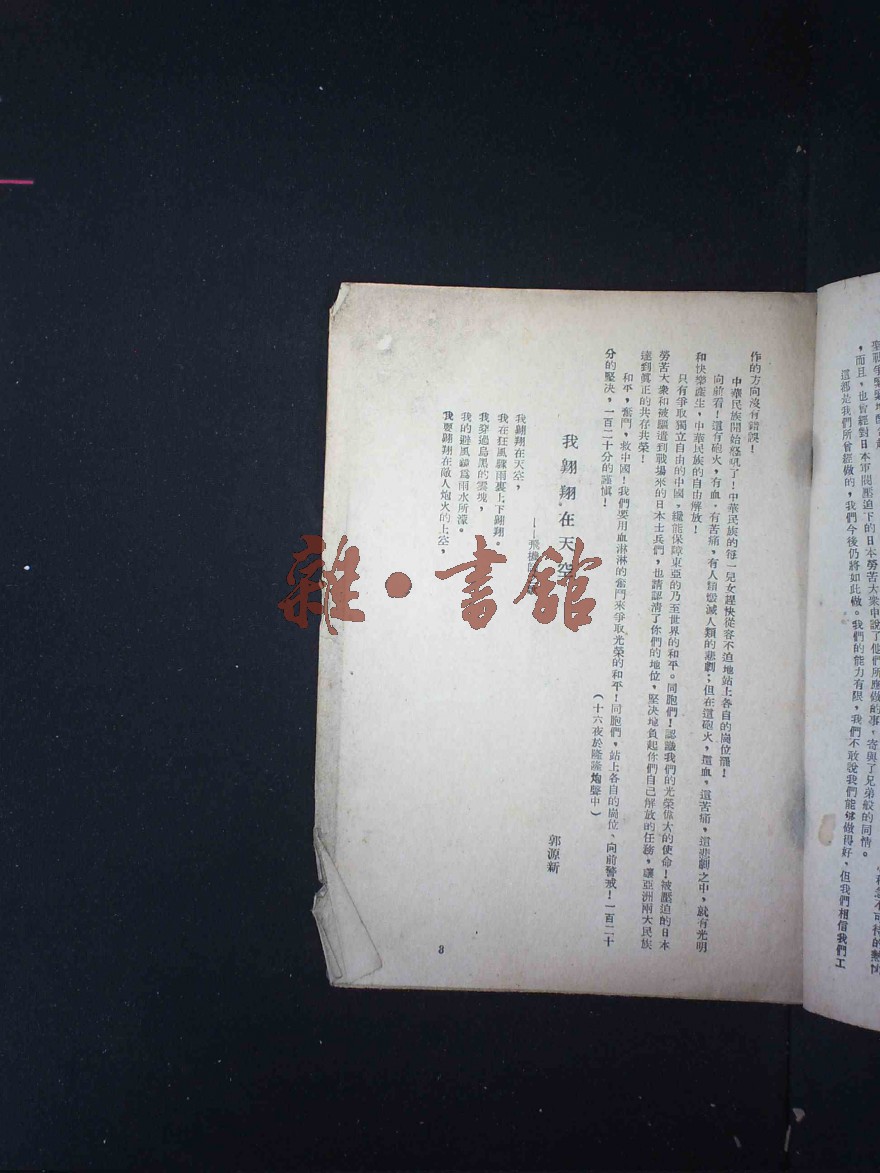 聖戰爭
，而且，也曾經對日本軍閥壓迫下的日本勞苦大衆中說了他們所應做的事，寄與了兄弟般的同情。
這都是我們所曾經做的，我們今後仍將如此做。我們的能力有限，我們不敢說我們能够做得好，但我們相信我們工
作的方向沒有錯誤！
中華民族開始怒吼了！中華民族的每一兒女趕快從容不迫地站上各自的崗位擺！
向前看！還有砲火，有血，有苦痛，有人類毀滅人類的悲劇；但在這砲火，這血，這苦痛，這悲劇之中，就有光明
和快樂產生，中華民族的自由解放！
只有爭取獨立自由的中國，纔能保障東亞的乃至世界的和平。同胞們！認識我們的光榮偉大的使命！被壓迫的日本
勞苦大衆和被驅遣到戰場來的日本士兵們，也請認清了你們的地位，堅決地負起你們自己解放的任務，讓亞洲兩大民族
達到眞正的共存共榮！
和平，奮鬥，救中國！我們要用血淋淋的奮鬥來爭取光榮的和平！同胞們，站上各自的崗位、向前警戒！一百二十
分的堅決，一百二十分的謹愼！
（十六夜於隆隆炮聲中）
我翺翔在天空
——飛機師
郭源新
我翺翔在天空，
我在狂風驟雨裏上下翺翔。
我穿過烏黑的雲塊，
我的避風鏡爲雨水所濛。
我要翺翔在敵人炮火的上空，
3
雜·書館